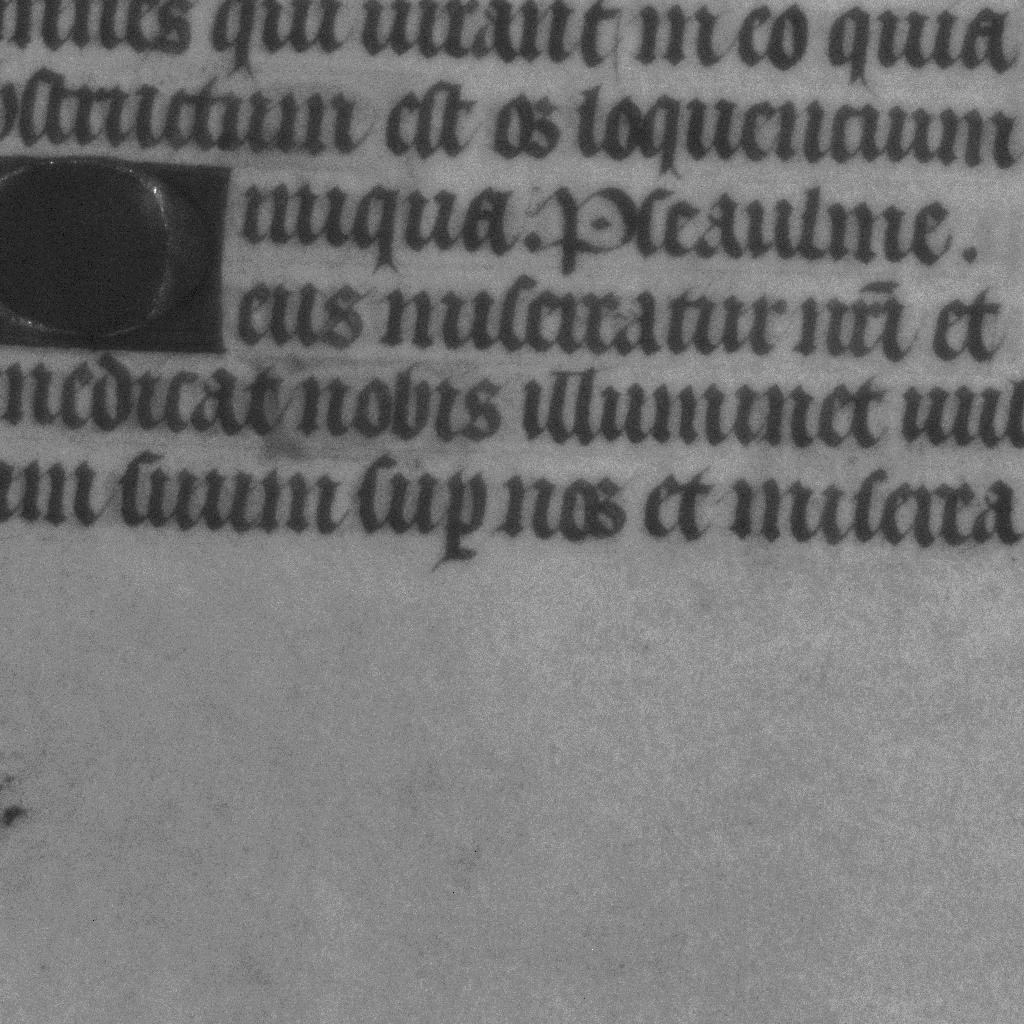 mnes qui iurant in eo quia
ostructum est os loquencium
iniqua. Pseaulme.
eus misereatur nr̄i et
nedicat nobis illuminet uul
um suum sup nos et miserea